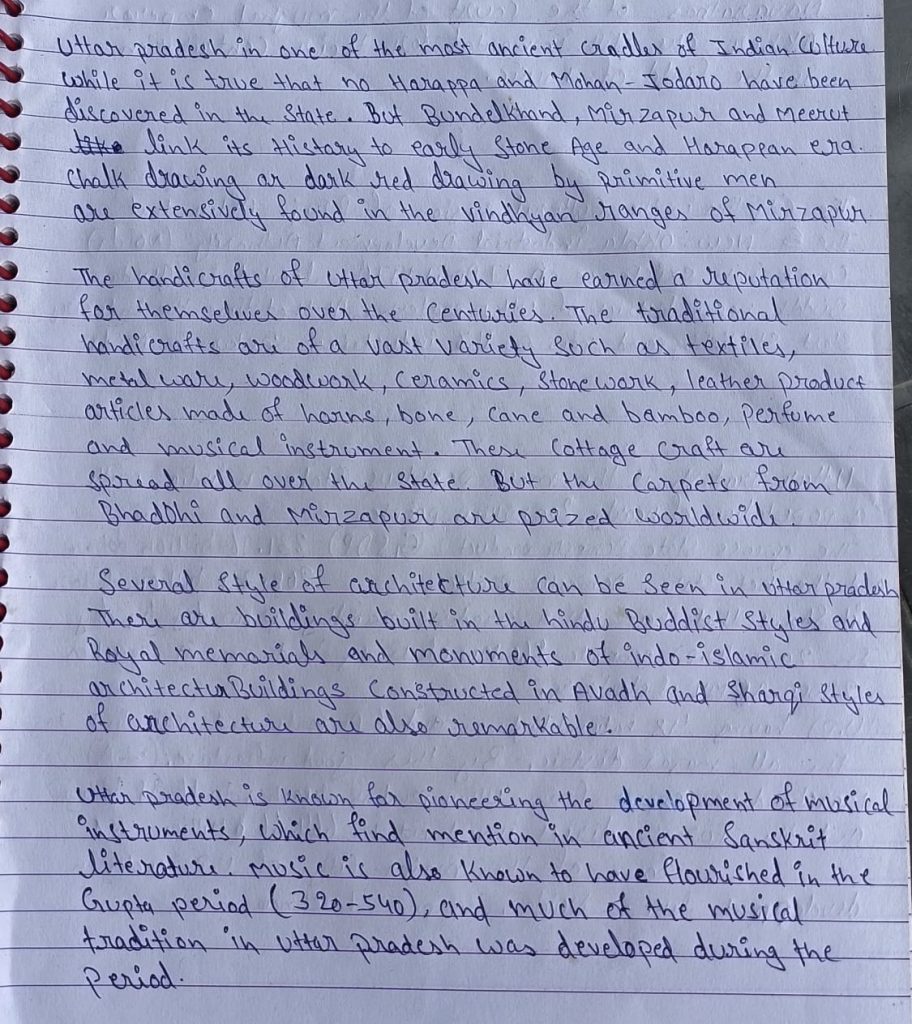 Uttar pradesh in one of the most ancient cradles of Indian Culture
while it is true that no Harappa and Mohan-Jodaro have been
discovered in the State. But Bundelkhand, Mirzapur and Meerut
link its History to early Stone Age and Harappan era.
Chalk drawing or dark red drawing by primitive men
are extensively found in the vindhyan ranges of Mirzapur
The handicrafts of Uttar pradesh have earned a reputation
for themselves over the Centuries. The traditional
handicrafts are of a vast variety Such as textiles,
metal ware, woodwork, Ceramics, Stone work, leather product
articles made of horns, bone, Cane and bamboo, Perfume
and musical instrument. These Cottage Craft are
spread all over the State. But the Carpets from
Bhadohi and Mirzapur are prized worldwide.
Several Style of architecture Can be Seen in Uttar pradesh
There are buildings built in the hindu Buddist Styles and
Royal memorials and monuments of indo-islamic
architectur Buildings Constructed in Avadh and Sharqi Styles
of architecture are also remarkable.
Uttar pradesh is known for pioneering the development of musical
instruments, which find mention in ancient Sanskrit
literature. Music is also Known to have flourished in the
Gupta period (320-540), and much of the musical
tradition in Uttar pradesh was developed during the
Period.